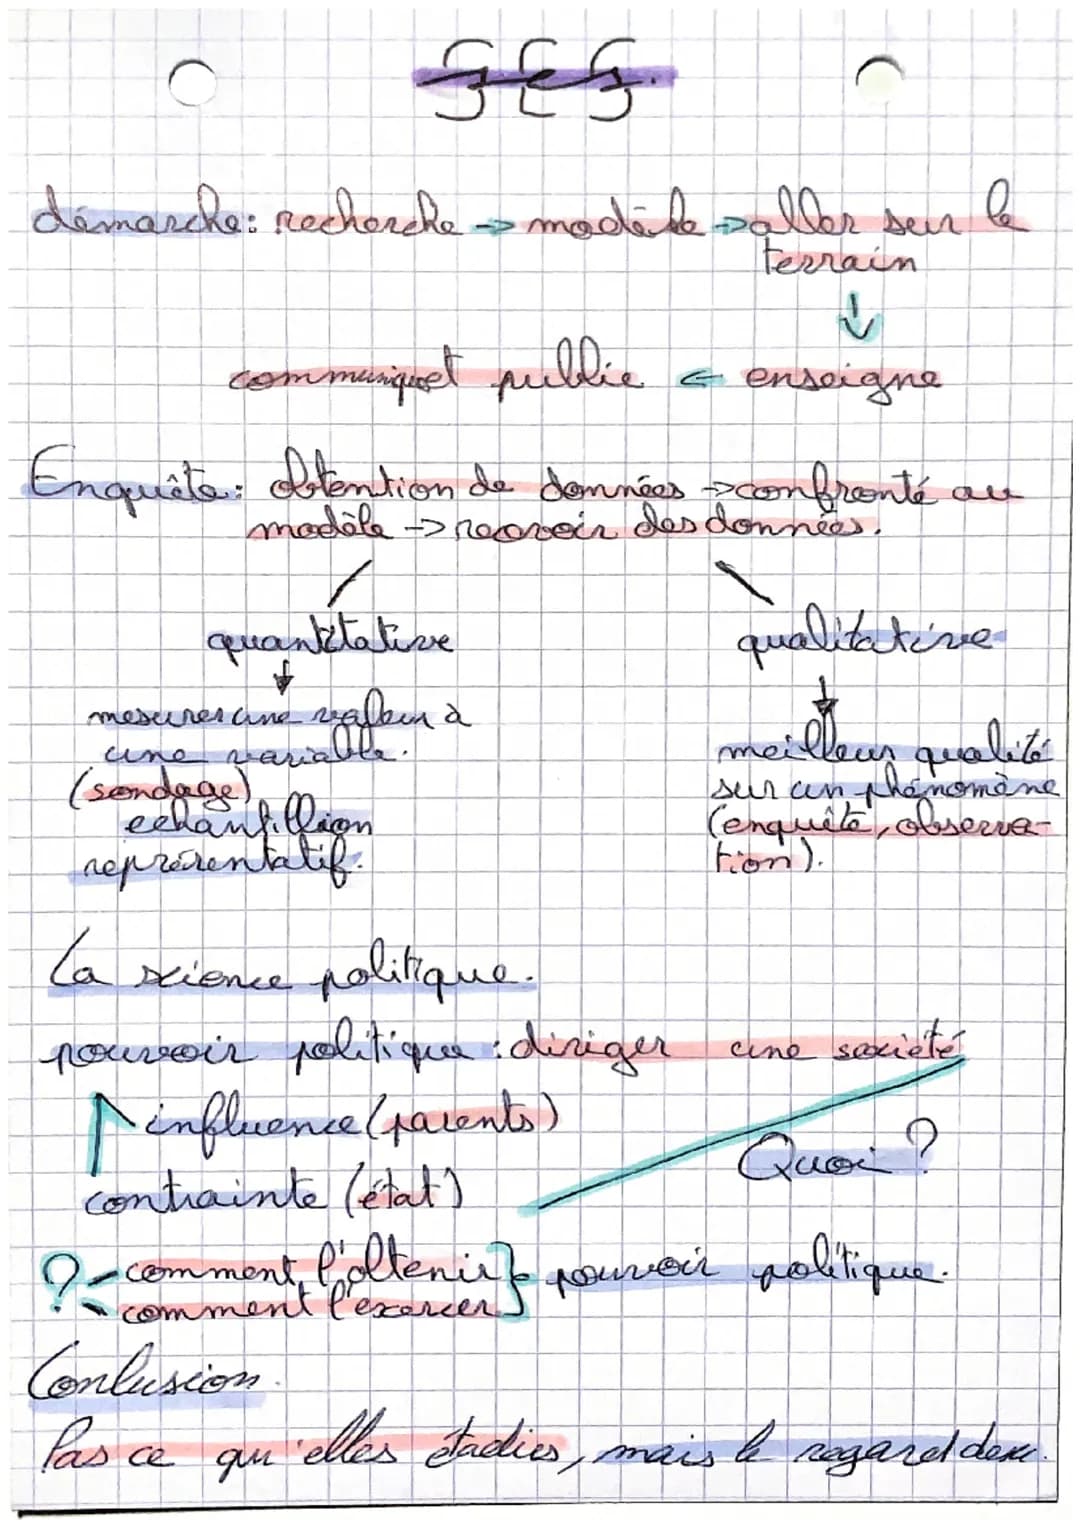 SES.
démarche: recherche -> modèle -> aller sur le
terrain
↓
communiquet public <- enseigne
Enquête: obtention de données -> confronté au
modèle -> recevoir des données.
quantitative qualitative
mesurer une valeur à
une variable.
(sondage)
echantillion
représentatif.
meilleur qualité
sur un phénomène
(enquête, observa-
tion).
La science politique.
pouvoir politique : diriger une société
influence (parents)
contrainte (état)
Quoi ?
? comment l'obtenir } pouvoir politique.
comment l'exercer
Conlusion.
Pas ce qu'elles étudies, mais le regard dessu.